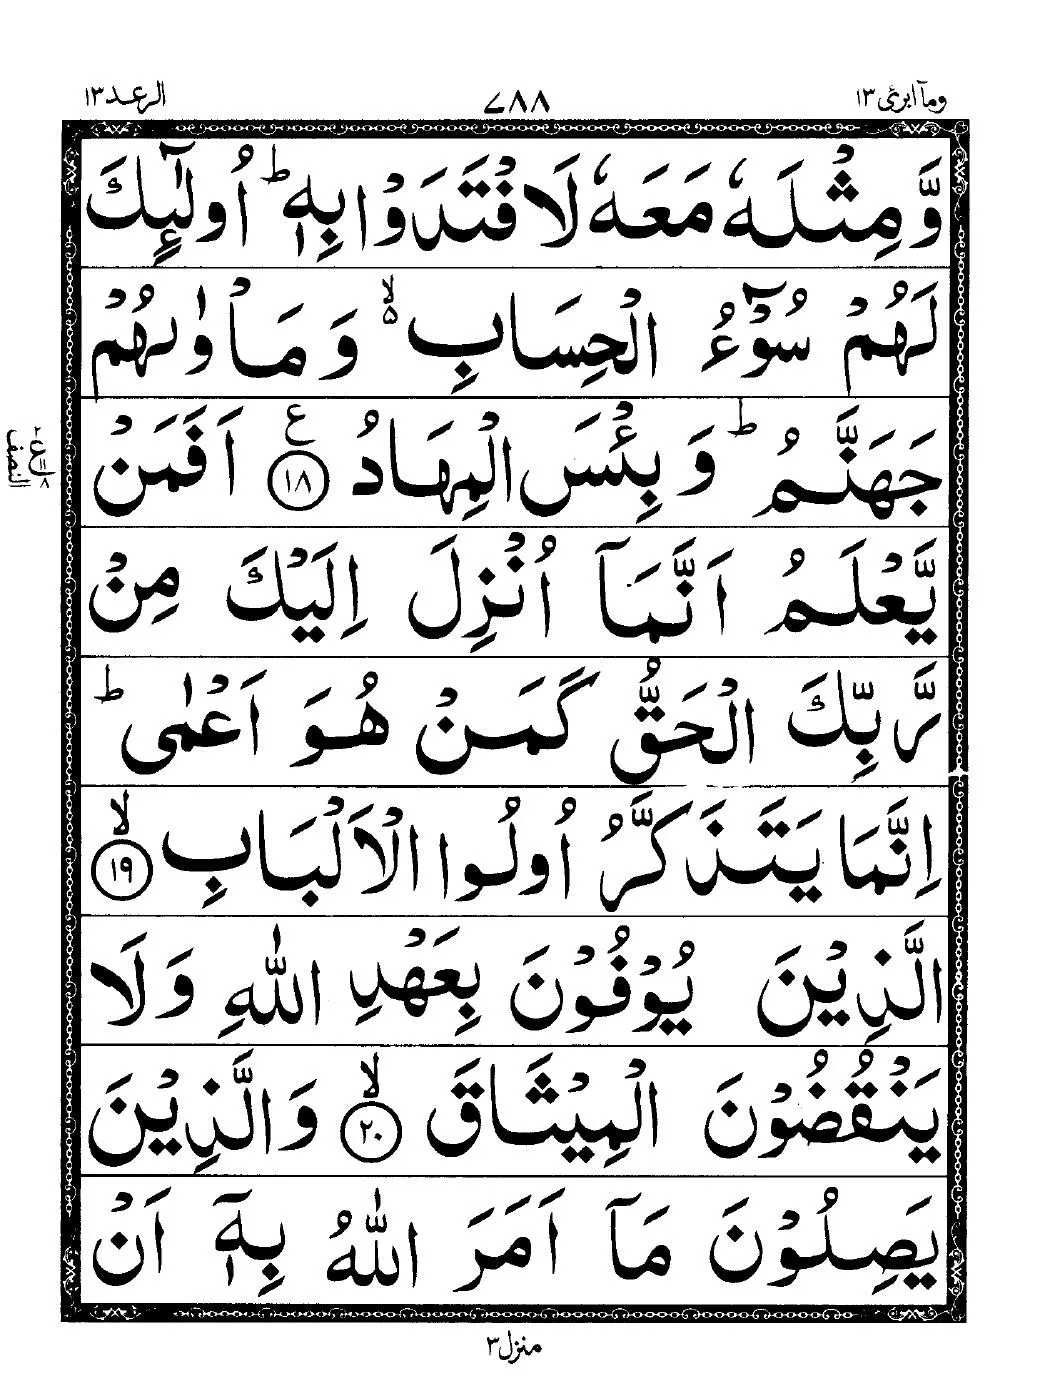 الرعد ١٣ ٤٨٨ ومآ ابرئ ١٣
وَّمِثْلَهٗ مَعَهٗ لَافْتَدَوْا بِهٖ ؕ اُولٰٓئِكَ
لَهُمْ سُوْٓءُ الْحِسَابِ ۙ۬ وَ مَاْوٰىهُمْ
جَهَنَّمُ ؕ وَ بِئْسَ الْمِهَادُ ۧ ١٨ اَفَمَنْ
يَّعْلَمُ اَنَّمَآ اُنْزِلَ اِلَيْكَ مِنْ
رَّبِّكَ الْحَقُّ كَمَنْ هُوَ اَعْمٰى ؕ
اِنَّمَا يَتَذَكَّرُ اُولُوا الْاَلْبَابِ ۙ ١٩
الَّذِيْنَ يُوْفُوْنَ بِعَهْدِ اللّٰهِ وَلَا
يَنْقُضُوْنَ الْمِيْثَاقَ ۙ ٢٠ وَالَّذِيْنَ
يَصِلُوْنَ مَآ اَمَرَ اللّٰهُ بِهٖٓ اَنْ
منزل ٣
النصف